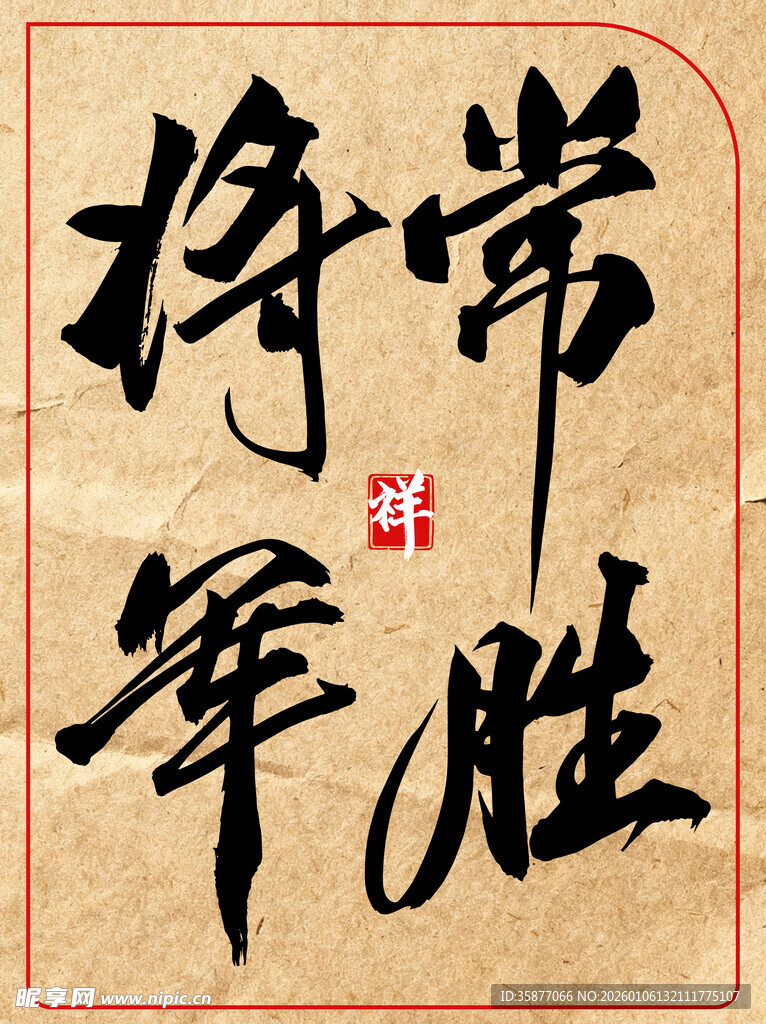 常胜
将军
祥
昵享网 www.nipic.cn
ID:35877066 NO:20260106132111775107